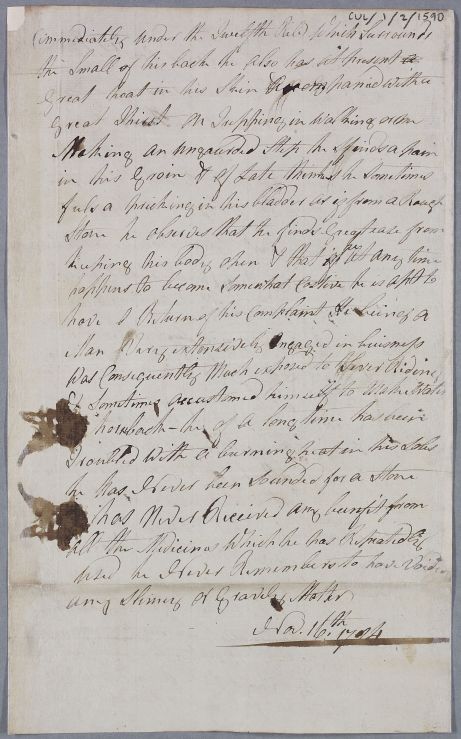 CUL/1/2/1590
immediately under the Twelfth Rib Which Surrounds
the Small of his back he also has at present a
Great heat in his Skin Accompanied with a
Great Thirst On Tripping in Walking or on
Making an unguarded Step he finds a pain
in his Groin & of Late thinks he Sometimes
feels a pricking in his bladder as if from a Rough
Stone he observes that he finds Great ease from
keeping his body open & that if he at any time
happens to become Somewhat Costive he is apt to
have a Return of his Complaint He being a
Man Very extensively Engaged in buisness
was Consequently Much exposed to Riding
& Sometimes accustomed himself to Make Water
horseback – he of a long time has been
Troubled with a burning heat in his Soles
he Has Never been Sounded for a Stone
has Never Received any benefit from
all the Medicines Which he has Repeatedly
used he Never Remembers to have Voided
any Slimey or Gravely Matter
Nov. 16th 1784